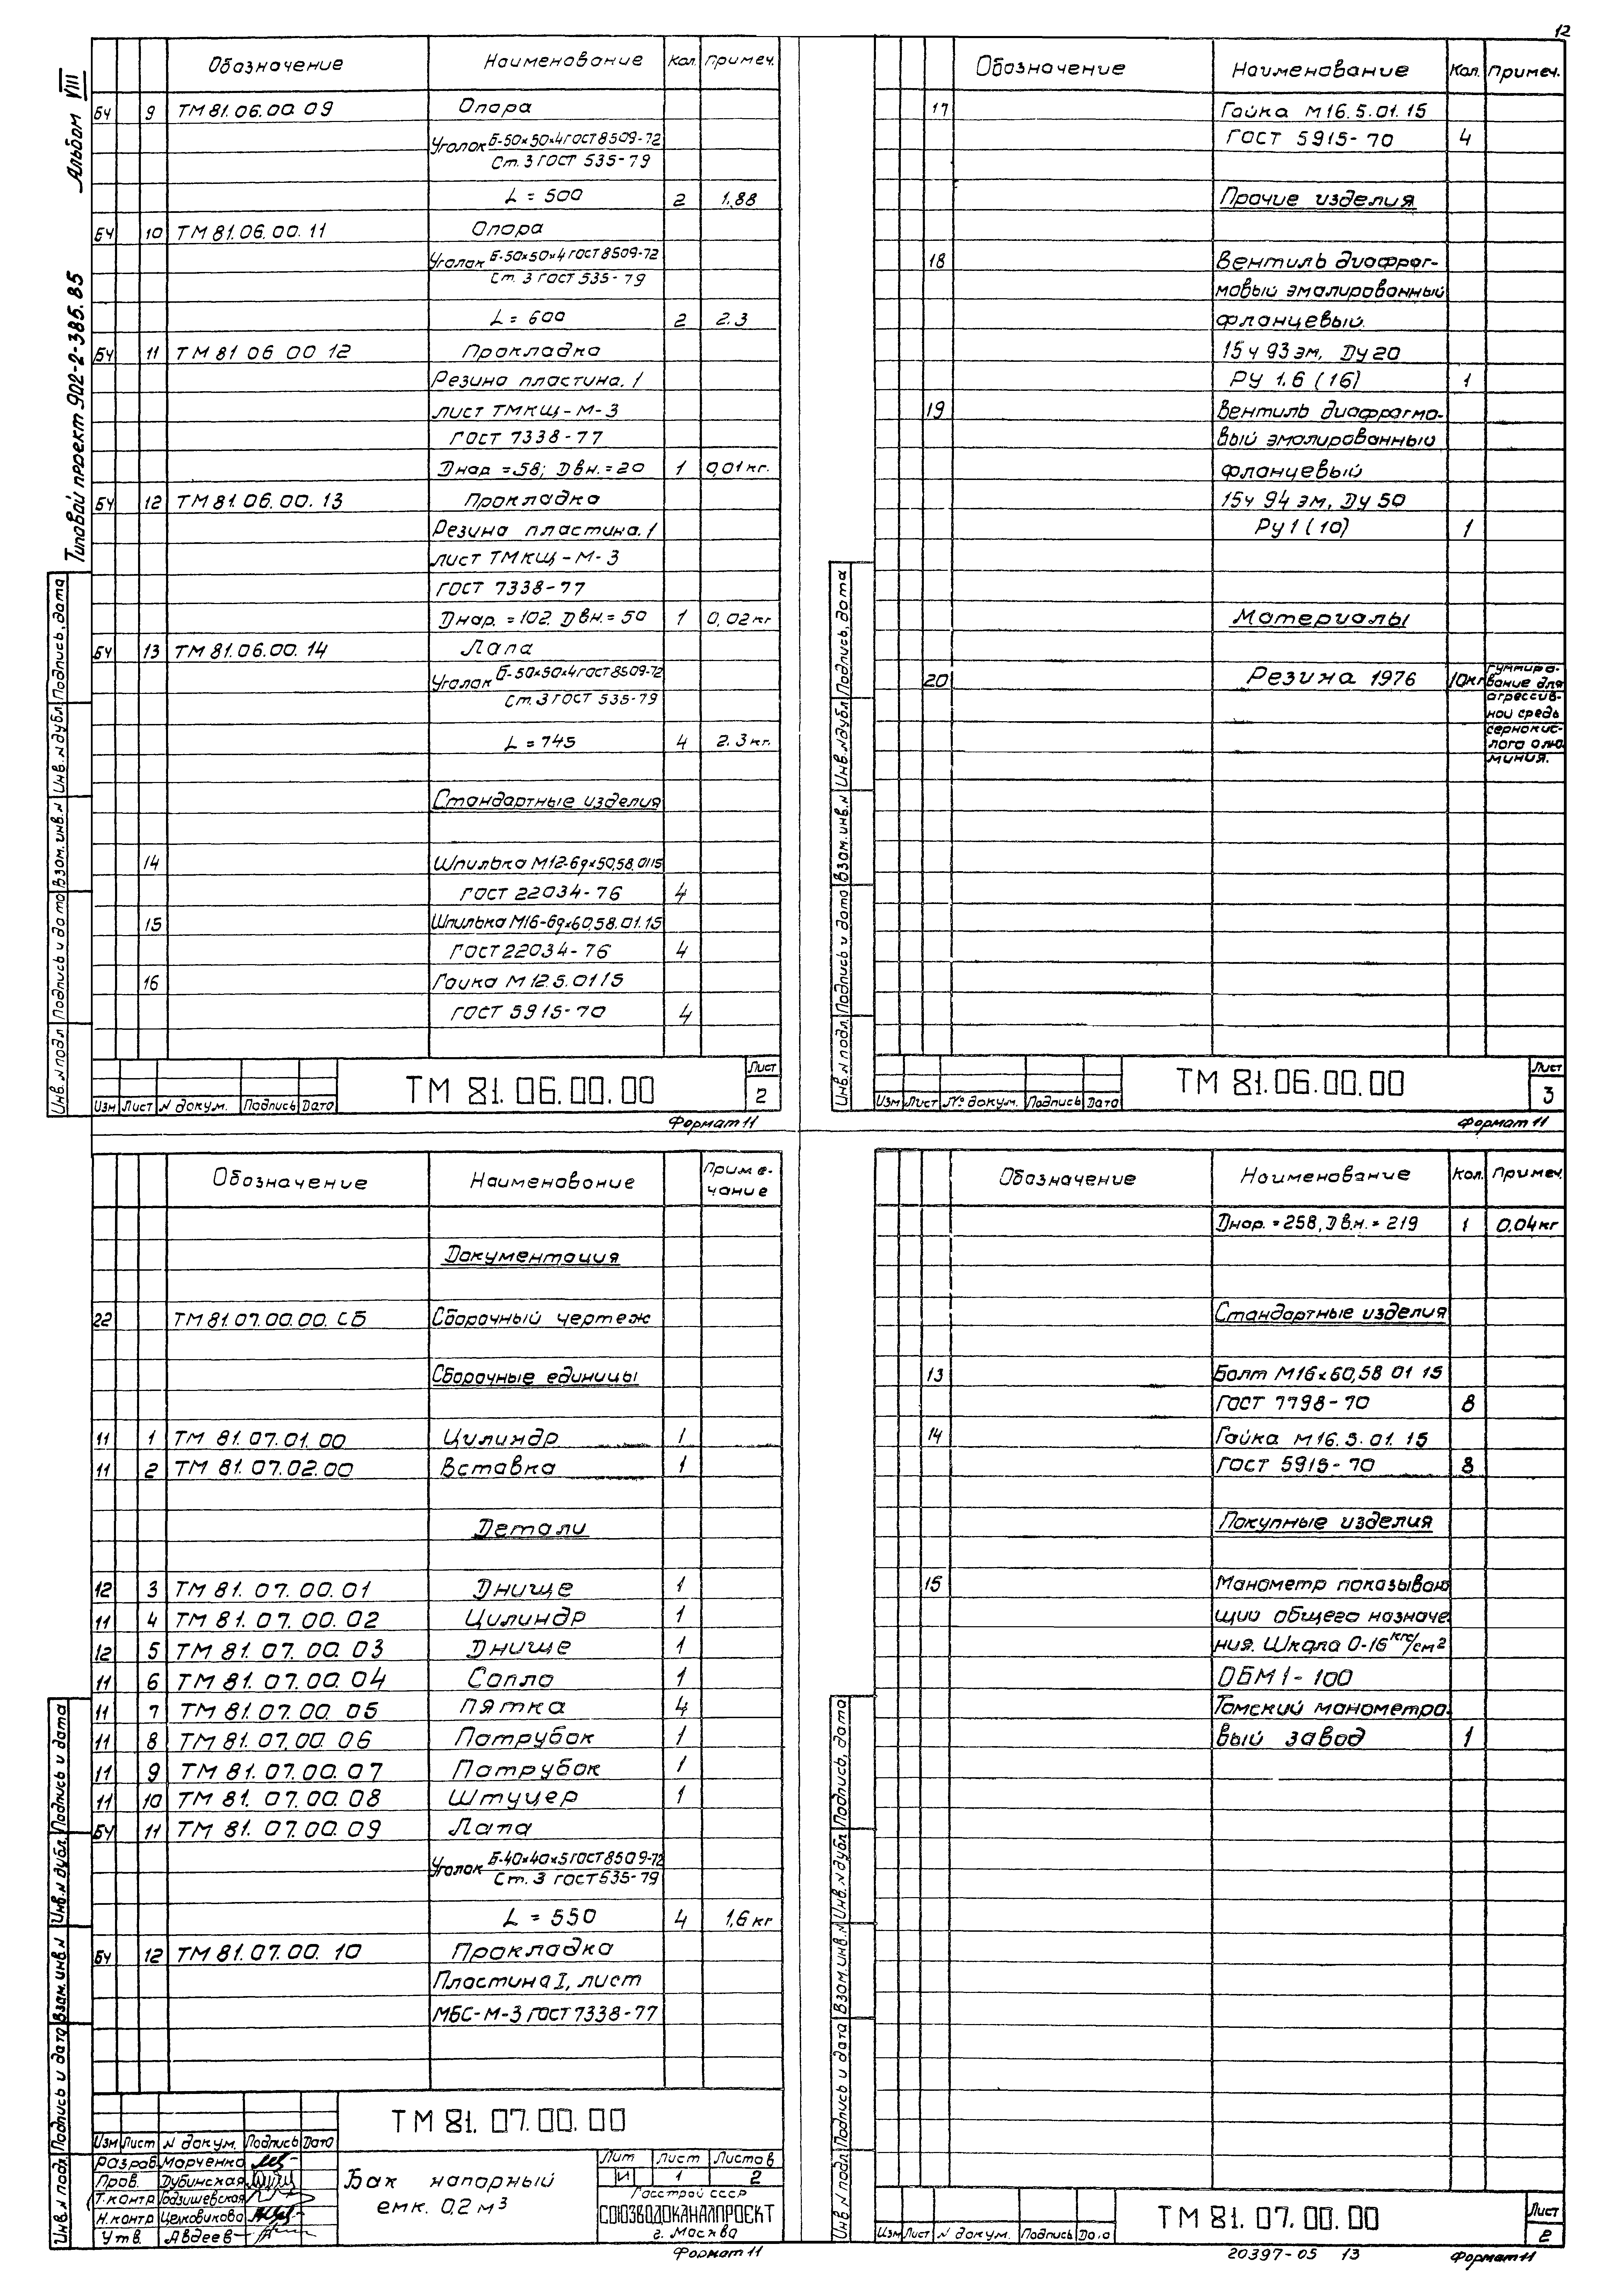 12
Альбом VIII
Типовой проект 902-2-385.85
Обозначение Наименование Кол. Примеч.
БЧ 9 ТМ 81.06.00.09 Опора
Уголок Б-50×50×4 ГОСТ 8509-72
Ст. 3 ГОСТ 535-79
L = 500 2 1,88
БЧ 10 ТМ 81.06.00.11 Опора
Уголок Б-50×50×4 ГОСТ 8509-72
Ст. 3 ГОСТ 535-79
L = 600 2 2.3
БЧ 11 ТМ 81 06 00 12 Прокладка
Резина пластина. 1
лист ТМКЩ-М-3
ГОСТ 7338-77
Днар = 58; Двн. = 20 1 0,01 кг.
БЧ 12 ТМ 81.06.00.13 Прокладка
Резина пластина. 1
лист ТМКЩ-М-3
ГОСТ 7338-77
Днар. = 102. Двн. = 50 1 0,02 кг
БЧ 13 ТМ 81.06.00.14 Лапа
Уголок Б-50×50×4 ГОСТ 8509-72
Ст. 3 ГОСТ 535-79
L = 745 4 2.3 кг.
Стандартные изделия
14 Шпилька М12-6g×50,58.0115
ГОСТ 22034-76 4
15 Шпилька М16-6g×60,58.01.15
ГОСТ 22034-76 4
16 Гайка М 12.5.0115
ГОСТ 5915-70 4
Изм Лист N докум. Подпись Дата
ТМ 81.06.00.00
Лист
2
Формат 11
Инв. N подл. Подпись и дата Взам. инв. N Инв. N дубл. Подпись, дата
Обозначение Наименование Кол. Примеч.
17 Гайка М16.5.01.15
ГОСТ 5915-70 4
Прочие изделия
18 Вентиль диафраг-
мовый эмалированный
фланцевый.
15ч 93 эм, Ду 20
РУ 1.6 (16) 1
19 Вентиль диафрагмо-
вый эмалированный
фланцевый
15ч 94 эм, Ду 50
Ру 1 (10) 1
Материалы
20 Резина 1976 10кг гуммиро-
вание для
агрессив-
ной средь
сернокис-
лого алю
миния.
Изм Лист № докум. Подпись Дата
ТМ 81.06.00.00
Лист
3
Формат 11
Инв. N подл. Подпись и дата Взам. инв. N Инв. N дубл. Подпись, дата
Обозначение Наименование Приме-
чание
Документация
22 ТМ 81.07.00.00.СБ Сборочный чертеж
Сборочные единицы
11 1 ТМ 81.07.01.00 Цилиндр 1
11 2 ТМ 81.07.02.00 Вставка 1
Детали
12 3 ТМ 81.07.00.01 Днище 1
11 4 ТМ 81.07.00.02 Цилиндр 1
12 5 ТМ 81.07.00.03 Днище 1
11 6 ТМ 81.07.00.04 Сопло 1
11 7 ТМ 81.07.00.05 Пятка 4
11 8 ТМ 81.07.00.06 Патрубок 1
11 9 ТМ 81.07.00.07 Патрубок 1
11 10 ТМ 81.07.00.08 Штуцер 1
БЧ 11 ТМ 81.07.00.09 Лапа
Уголок Б-40×40×5 ГОСТ 8509-72
Ст. 3 ГОСТ 535-79
L = 550 4 1,6 кг
БЧ 12 ТМ 81.07.00.10 Прокладка
Пластина I, лист
МБС-М-3 ГОСТ 7338-77
ТМ 81.07.00.00
Изм Лист N докум. Подпись Дата
Разраб. Марченко
Пров. Дубинская
Т.контр Годзишевская
Н.контр Целковикова
Утв. Авдеев
Бак напорный
емк. 0,2 м³
Лит Лист Листов
И 1 2
Госстрой СССР
СОЮЗВОДОКАНАЛПРОЕКТ
г. Москва
Формат 11
Инв. N подл. Подпись и дата Взам. инв. N Инв. N дубл. Подпись и дата
Обозначение Наименование Кол. Примеч.
Днар. = 258, Двн. = 219 1 0.04 кг
Стандартные изделия
13 Болт М16×60,58 01 15
ГОСТ 7798-70 8
14 Гайка М16.5.01.15
ГОСТ 5915-70 8
Покупные изделия
15 Манометр показываю
щий общего назначе
ния. Шкала 0-16 кгс/см²
ОБМ1-100
Томский манометро.
вый завод 1
Изм Лист N докум. Подпись
ТМ 81.07.00.00
Лист
2
20397-05 13
Формат 11
Инв. N подл. Подпись и дата Взам. инв. N Инв. N дубл. Подпись, дата